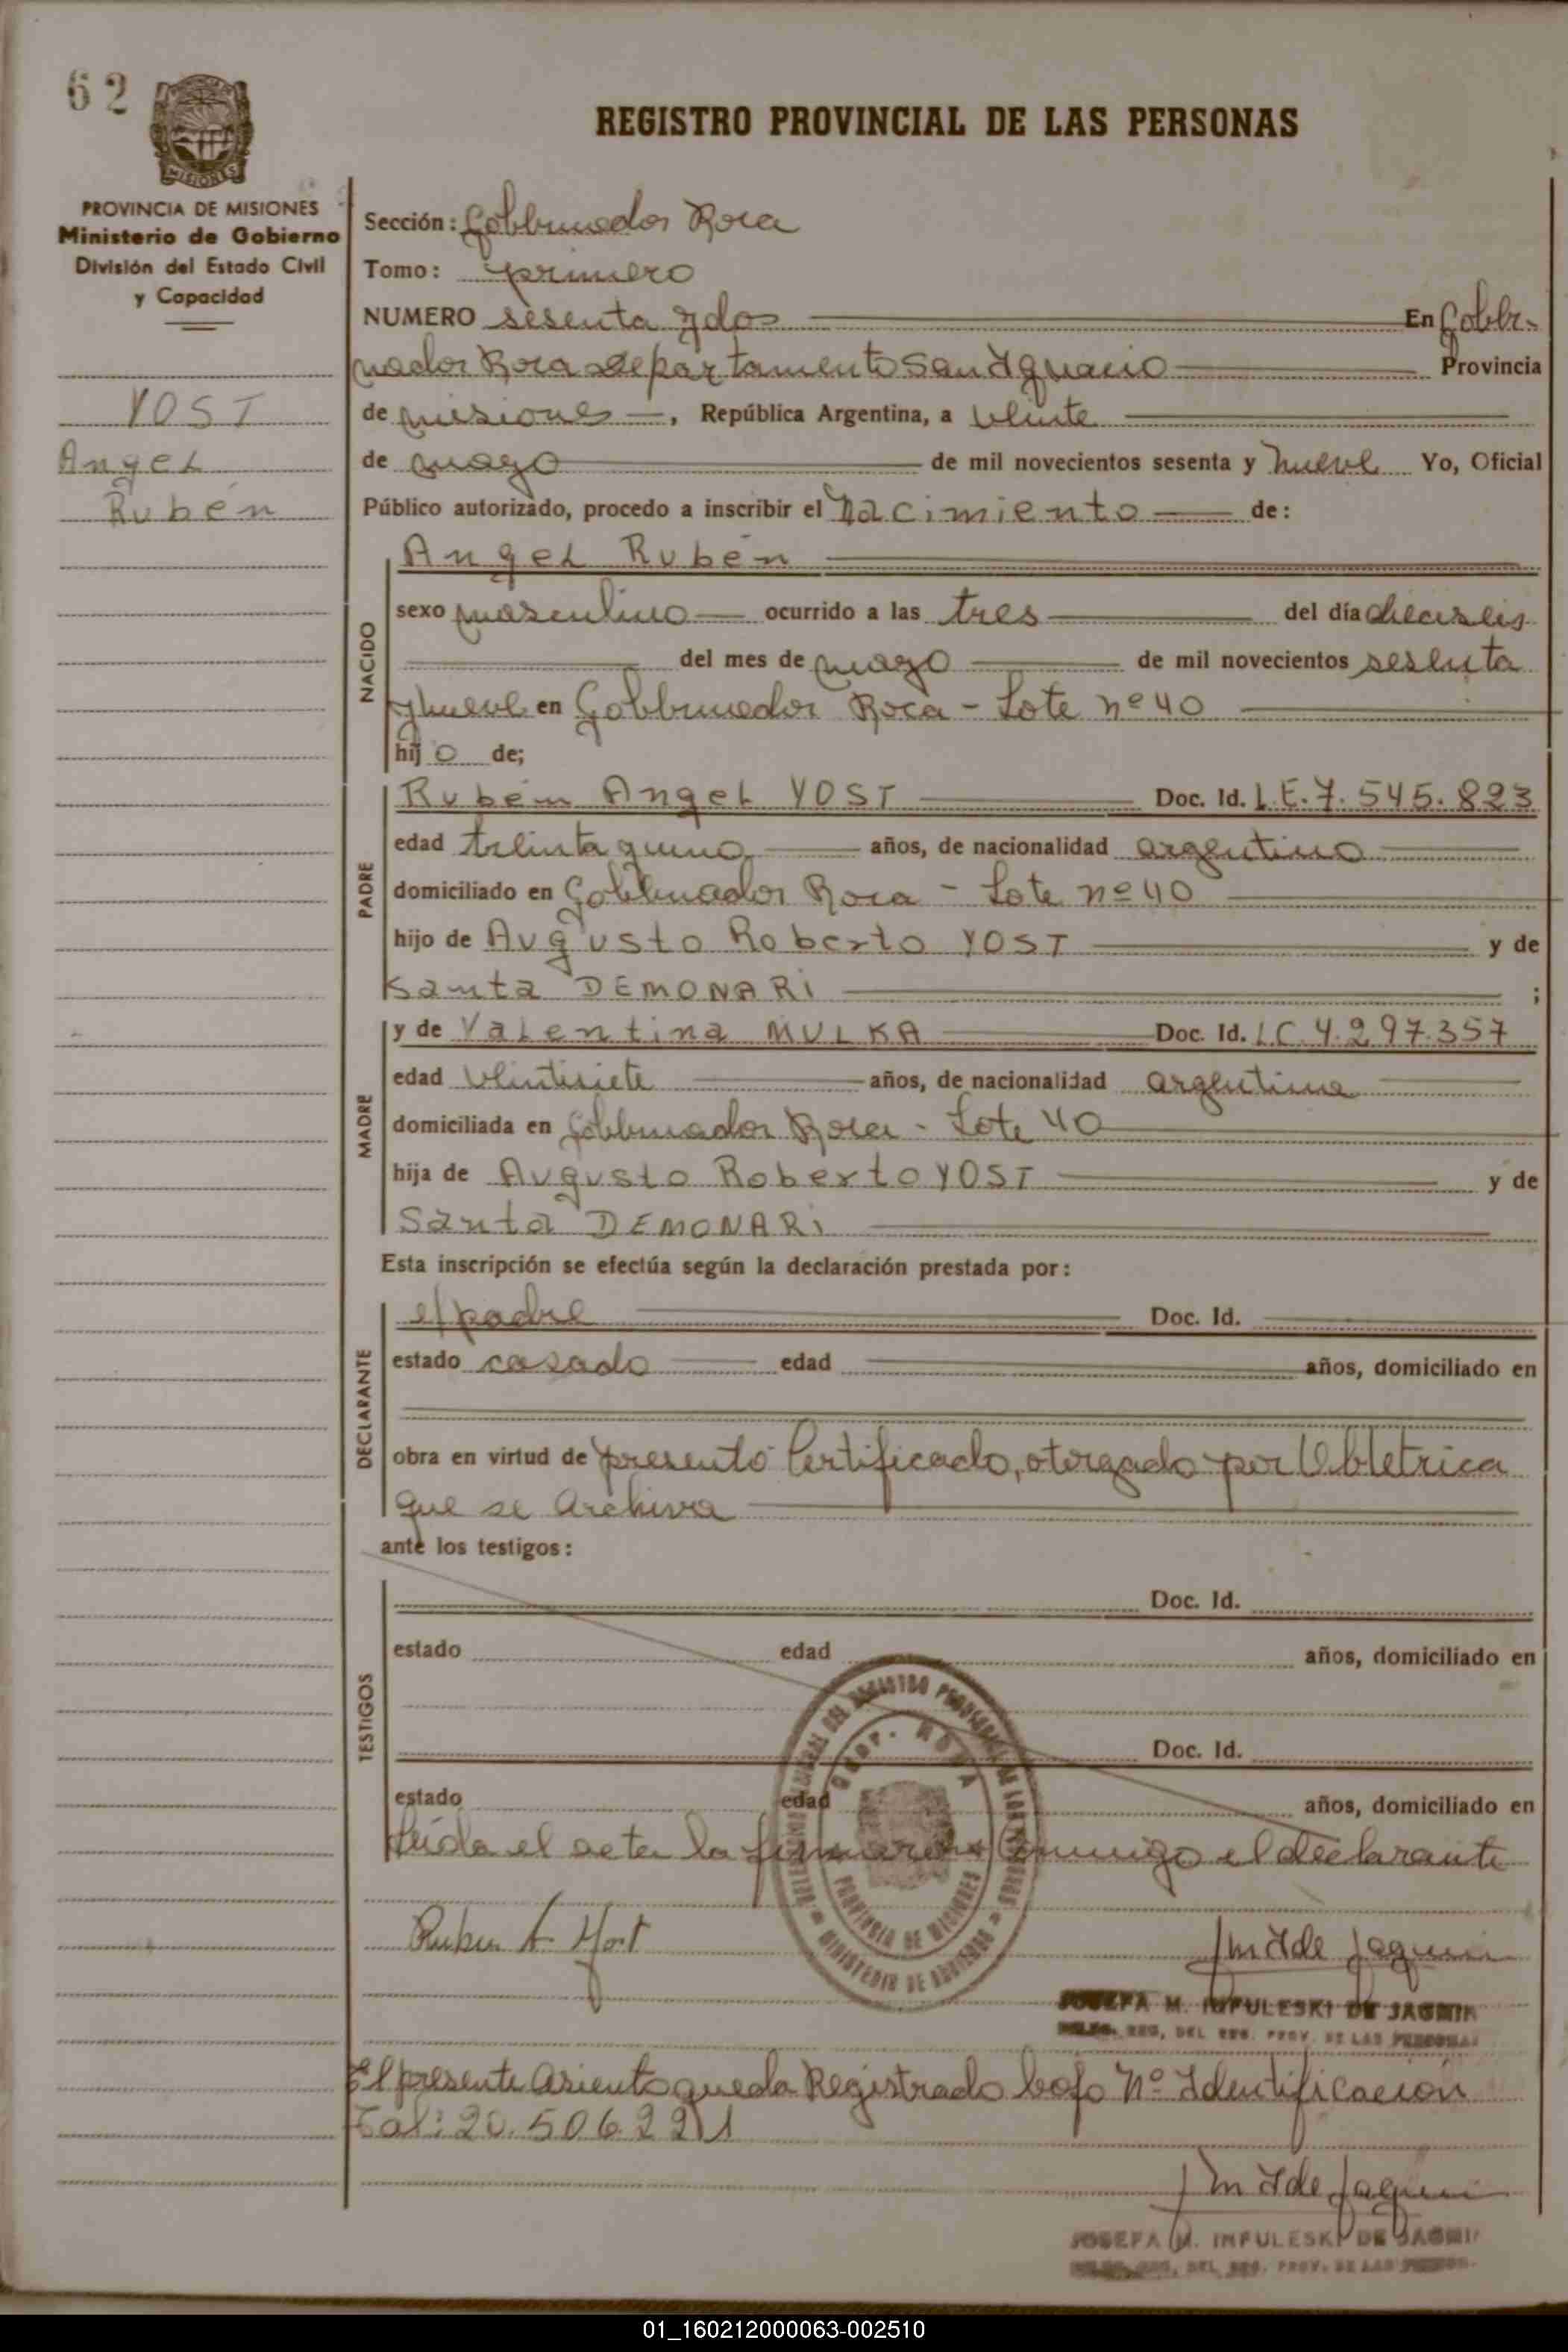 62
MISIONES
PROVINCIA DE MISIONES
Ministerio de Gobierno
División del Estado Civil
y Capacidad
YOST
Angel
Rubén
REGISTRO PROVINCIAL DE LAS PERSONAS
Sección: Gobernador Roca
Tomo: primero
NUMERO sesenta y dos En Gober-
nador Roca Departamento San Ignacio Provincia
de misiones, República Argentina, a veinte
de mayo de mil novecientos sesenta y nueve Yo, Oficial
Público autorizado, procedo a inscribir el nacimiento de:
NACIDO
Angel Rubén
sexo masculino ocurrido a las tres del día dieciseis
del mes de mayo de mil novecientos sesenta
y nueve en Gobernador Roca - Lote nº 40
hijo de;
PADRE
Rubém Angel YOST Doc. Id. L.E. 7.545.823
edad treinta y uno años, de nacionalidad argentino
domiciliado en Gobernador Roca - Lote nº 40
hijo de Augusto Roberto YOST y de
Santa DEMONARI ;
MADRE
y de Valentina MULKA Doc. Id. L.C 4.297.357
edad veintisiete años, de nacionalidad argentina
domiciliada en Gobernador Roca - Lote 40
hija de Augusto Roberto YOST y de
Santa DEMONARI
Esta inscripción se efectúa según la declaración prestada por:
DECLARANTE
el padre Doc. Id.
estado casado edad años, domiciliado en
obra en virtud de presentó Certificado, otorgado por Obletrica
que se archiva
ante los testigos:
TESTIGOS
Doc. Id.
estado edad años, domiciliado en
Doc. Id.
estado edad años, domiciliado en
Leida el acta la firmaron conmigo el declarante
Gdor. ROCA
PROVINCIA DE MISIONES
MINISTERIO DE GOBIERNO
Ruben A. Yost
JmIde Jagmin
JOSEFA M. INFULESKI DE JAGMIN
REG. DEL REG. PROV. DE LAS PERSONAS
El presente Asiento queda Registrado bajo Nº Identificación
Tal: 20.506.221
JmIde Jagmin
JOSEFA M. INFULESKI DE JAGMIN
REG. DEL REG. PROV. DE LAS
01_160212000063-002510